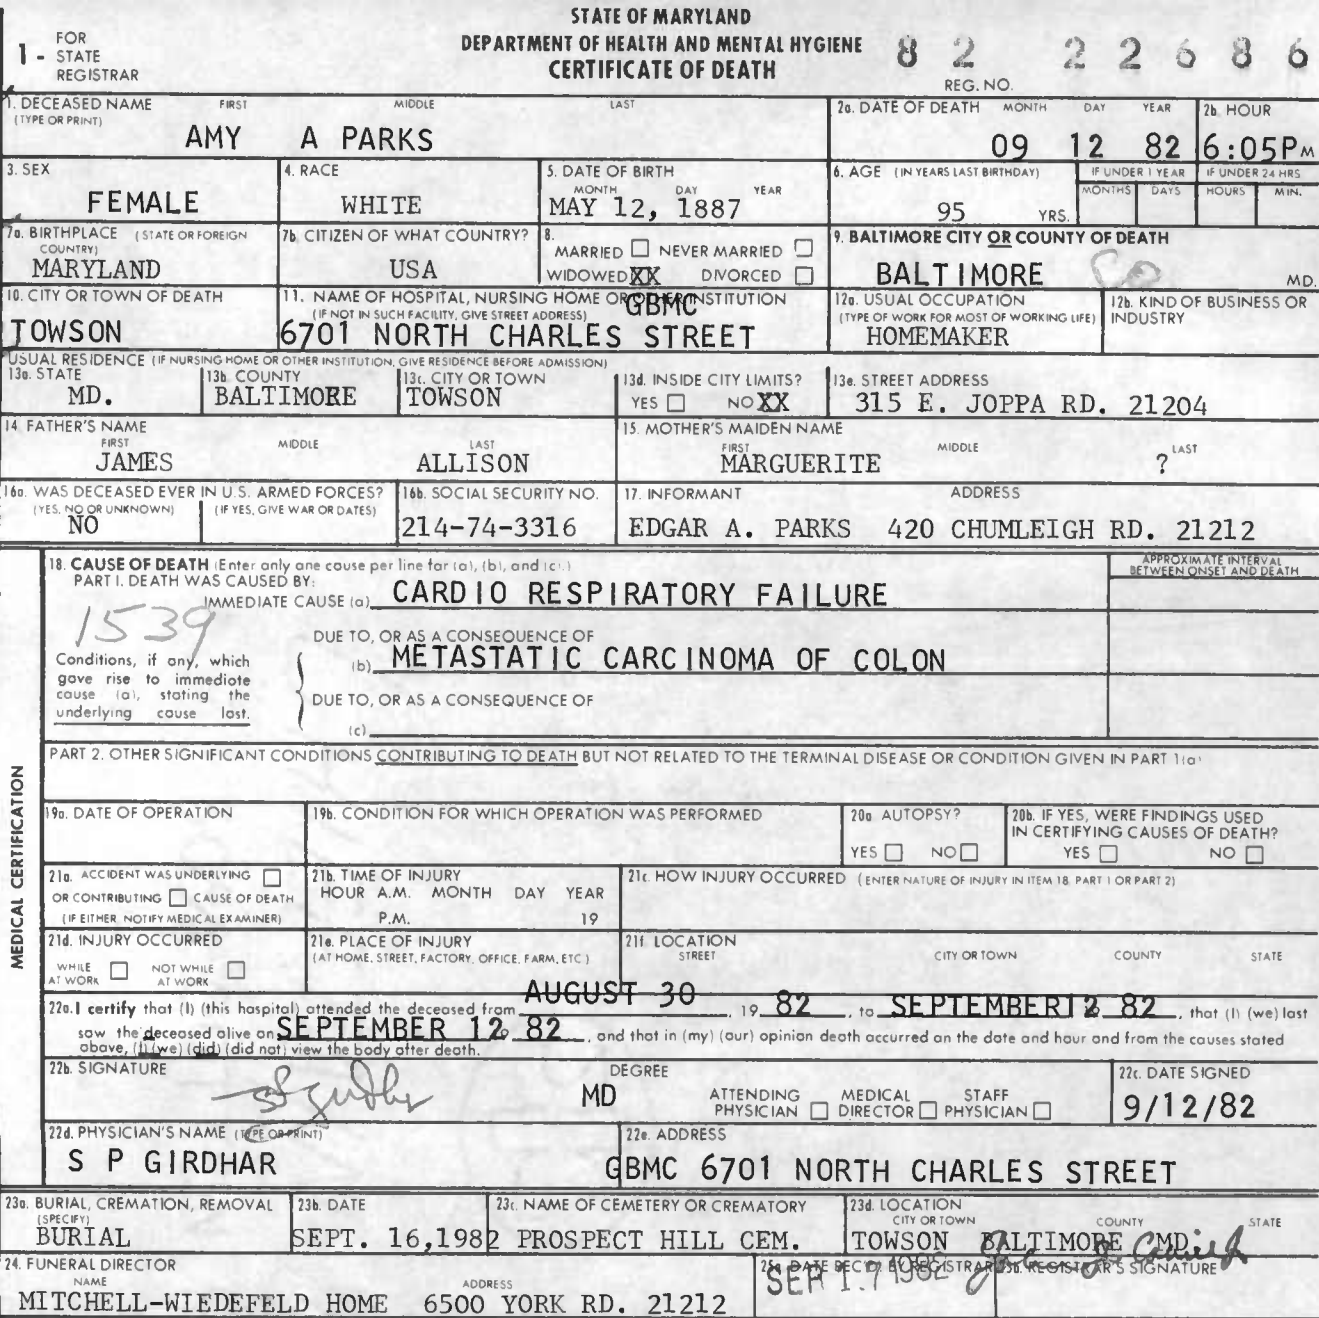 STATE OF MARYLAND
DEPARTMENT OF HEALTH AND MENTAL HYGIENE
CERTIFICATE OF DEATH
1 - FOR STATE REGISTRAR
82 22686
REG. NO.
1. DECEASED NAME (TYPE OR PRINT) FIRST MIDDLE LAST
AMY A PARKS
2a. DATE OF DEATH MONTH DAY YEAR
09 12 82
2b. HOUR
6:05PM
3. SEX
FEMALE
4. RACE
WHITE
5. DATE OF BIRTH MONTH DAY YEAR
MAY 12, 1887
6. AGE (IN YEARS LAST BIRTHDAY)
95 YRS.
IF UNDER 1 YEAR MONTHS DAYS
IF UNDER 24 HRS HOURS MIN.
7a. BIRTHPLACE (STATE OR FOREIGN COUNTRY)
MARYLAND
7b. CITIZEN OF WHAT COUNTRY?
USA
8. MARRIED NEVER MARRIED
WIDOWED XX DIVORCED
9. BALTIMORE CITY OR COUNTY OF DEATH
BALTIMORE Co MD.
10. CITY OR TOWN OF DEATH
TOWSON
11. NAME OF HOSPITAL, NURSING HOME OR OTHER INSTITUTION
(IF NOT IN SUCH FACILITY, GIVE STREET ADDRESS) GBMC
6701 NORTH CHARLES STREET
12a. USUAL OCCUPATION
(TYPE OF WORK FOR MOST OF WORKING LIFE)
HOMEMAKER
12b. KIND OF BUSINESS OR INDUSTRY
USUAL RESIDENCE (IF NURSING HOME OR OTHER INSTITUTION, GIVE RESIDENCE BEFORE ADMISSION)
13a. STATE
MD.
13b. COUNTY
BALTIMORE
13c. CITY OR TOWN
TOWSON
13d. INSIDE CITY LIMITS?
YES NO XX
13e. STREET ADDRESS
315 E. JOPPA RD. 21204
14. FATHER'S NAME
FIRST MIDDLE LAST
JAMES ALLISON
15. MOTHER'S MAIDEN NAME
FIRST MIDDLE LAST
MARGUERITE ?
16a. WAS DECEASED EVER IN U.S. ARMED FORCES?
(YES, NO OR UNKNOWN) (IF YES, GIVE WAR OR DATES)
NO
16b. SOCIAL SECURITY NO.
214-74-3316
17. INFORMANT ADDRESS
EDGAR A. PARKS 420 CHUMLEIGH RD. 21212
MEDICAL CERTIFICATION
18. CAUSE OF DEATH (Enter only one cause per line for (a), (b), and (c).)
PART I. DEATH WAS CAUSED BY:
APPROXIMATE INTERVAL BETWEEN ONSET AND DEATH
IMMEDIATE CAUSE (a) CARDIO RESPIRATORY FAILURE
1539
DUE TO, OR AS A CONSEQUENCE OF
(b) METASTATIC CARCINOMA OF COLON
Conditions, if any, which
gave rise to immediate
cause (a), stating the
underlying cause last.
DUE TO, OR AS A CONSEQUENCE OF
(c)
PART 2. OTHER SIGNIFICANT CONDITIONS CONTRIBUTING TO DEATH BUT NOT RELATED TO THE TERMINAL DISEASE OR CONDITION GIVEN IN PART 1(a)
19a. DATE OF OPERATION
19b. CONDITION FOR WHICH OPERATION WAS PERFORMED
20a AUTOPSY?
YES NO
20b. IF YES, WERE FINDINGS USED
IN CERTIFYING CAUSES OF DEATH?
YES NO
21a. ACCIDENT WAS UNDERLYING
OR CONTRIBUTING CAUSE OF DEATH
(IF EITHER, NOTIFY MEDICAL EXAMINER)
21b. TIME OF INJURY
HOUR A.M. MONTH DAY YEAR
P.M. 19
21c. HOW INJURY OCCURRED (ENTER NATURE OF INJURY IN ITEM 18, PART 1 OR PART 2)
21d. INJURY OCCURRED
WHILE AT WORK NOT WHILE AT WORK
21e. PLACE OF INJURY
(AT HOME, STREET, FACTORY, OFFICE, FARM, ETC.)
21f. LOCATION
STREET CITY OR TOWN COUNTY STATE
22a. I certify that (I) (this hospital) attended the deceased from AUGUST 30, 19 82, to SEPTEMBER 12 82, that (I) (we) last
saw the deceased alive on SEPTEMBER 12, 82, and that in (my) (our) opinion death occurred on the date and hour and from the causes stated
above, (I) (we) (did) (did not) view the body after death.
22b. SIGNATURE
DEGREE
MD
ATTENDING PHYSICIAN MEDICAL DIRECTOR STAFF PHYSICIAN
22c. DATE SIGNED
9/12/82
22d. PHYSICIAN'S NAME (TYPE OR PRINT)
S P GIRDHAR
22e. ADDRESS
GBMC 6701 NORTH CHARLES STREET
23a. BURIAL, CREMATION, REMOVAL (SPECIFY)
BURIAL
23b. DATE
SEPT. 16,1982
23c. NAME OF CEMETERY OR CREMATORY
PROSPECT HILL CEM.
23d. LOCATION
CITY OR TOWN COUNTY STATE
TOWSON BALTIMORE MD.
24. FUNERAL DIRECTOR
NAME ADDRESS
MITCHELL-WIEDEFELD HOME 6500 YORK RD. 21212
25a. DATE REC'D BY REGISTRAR
SEP 17 1982
25b. REGISTRAR'S SIGNATURE